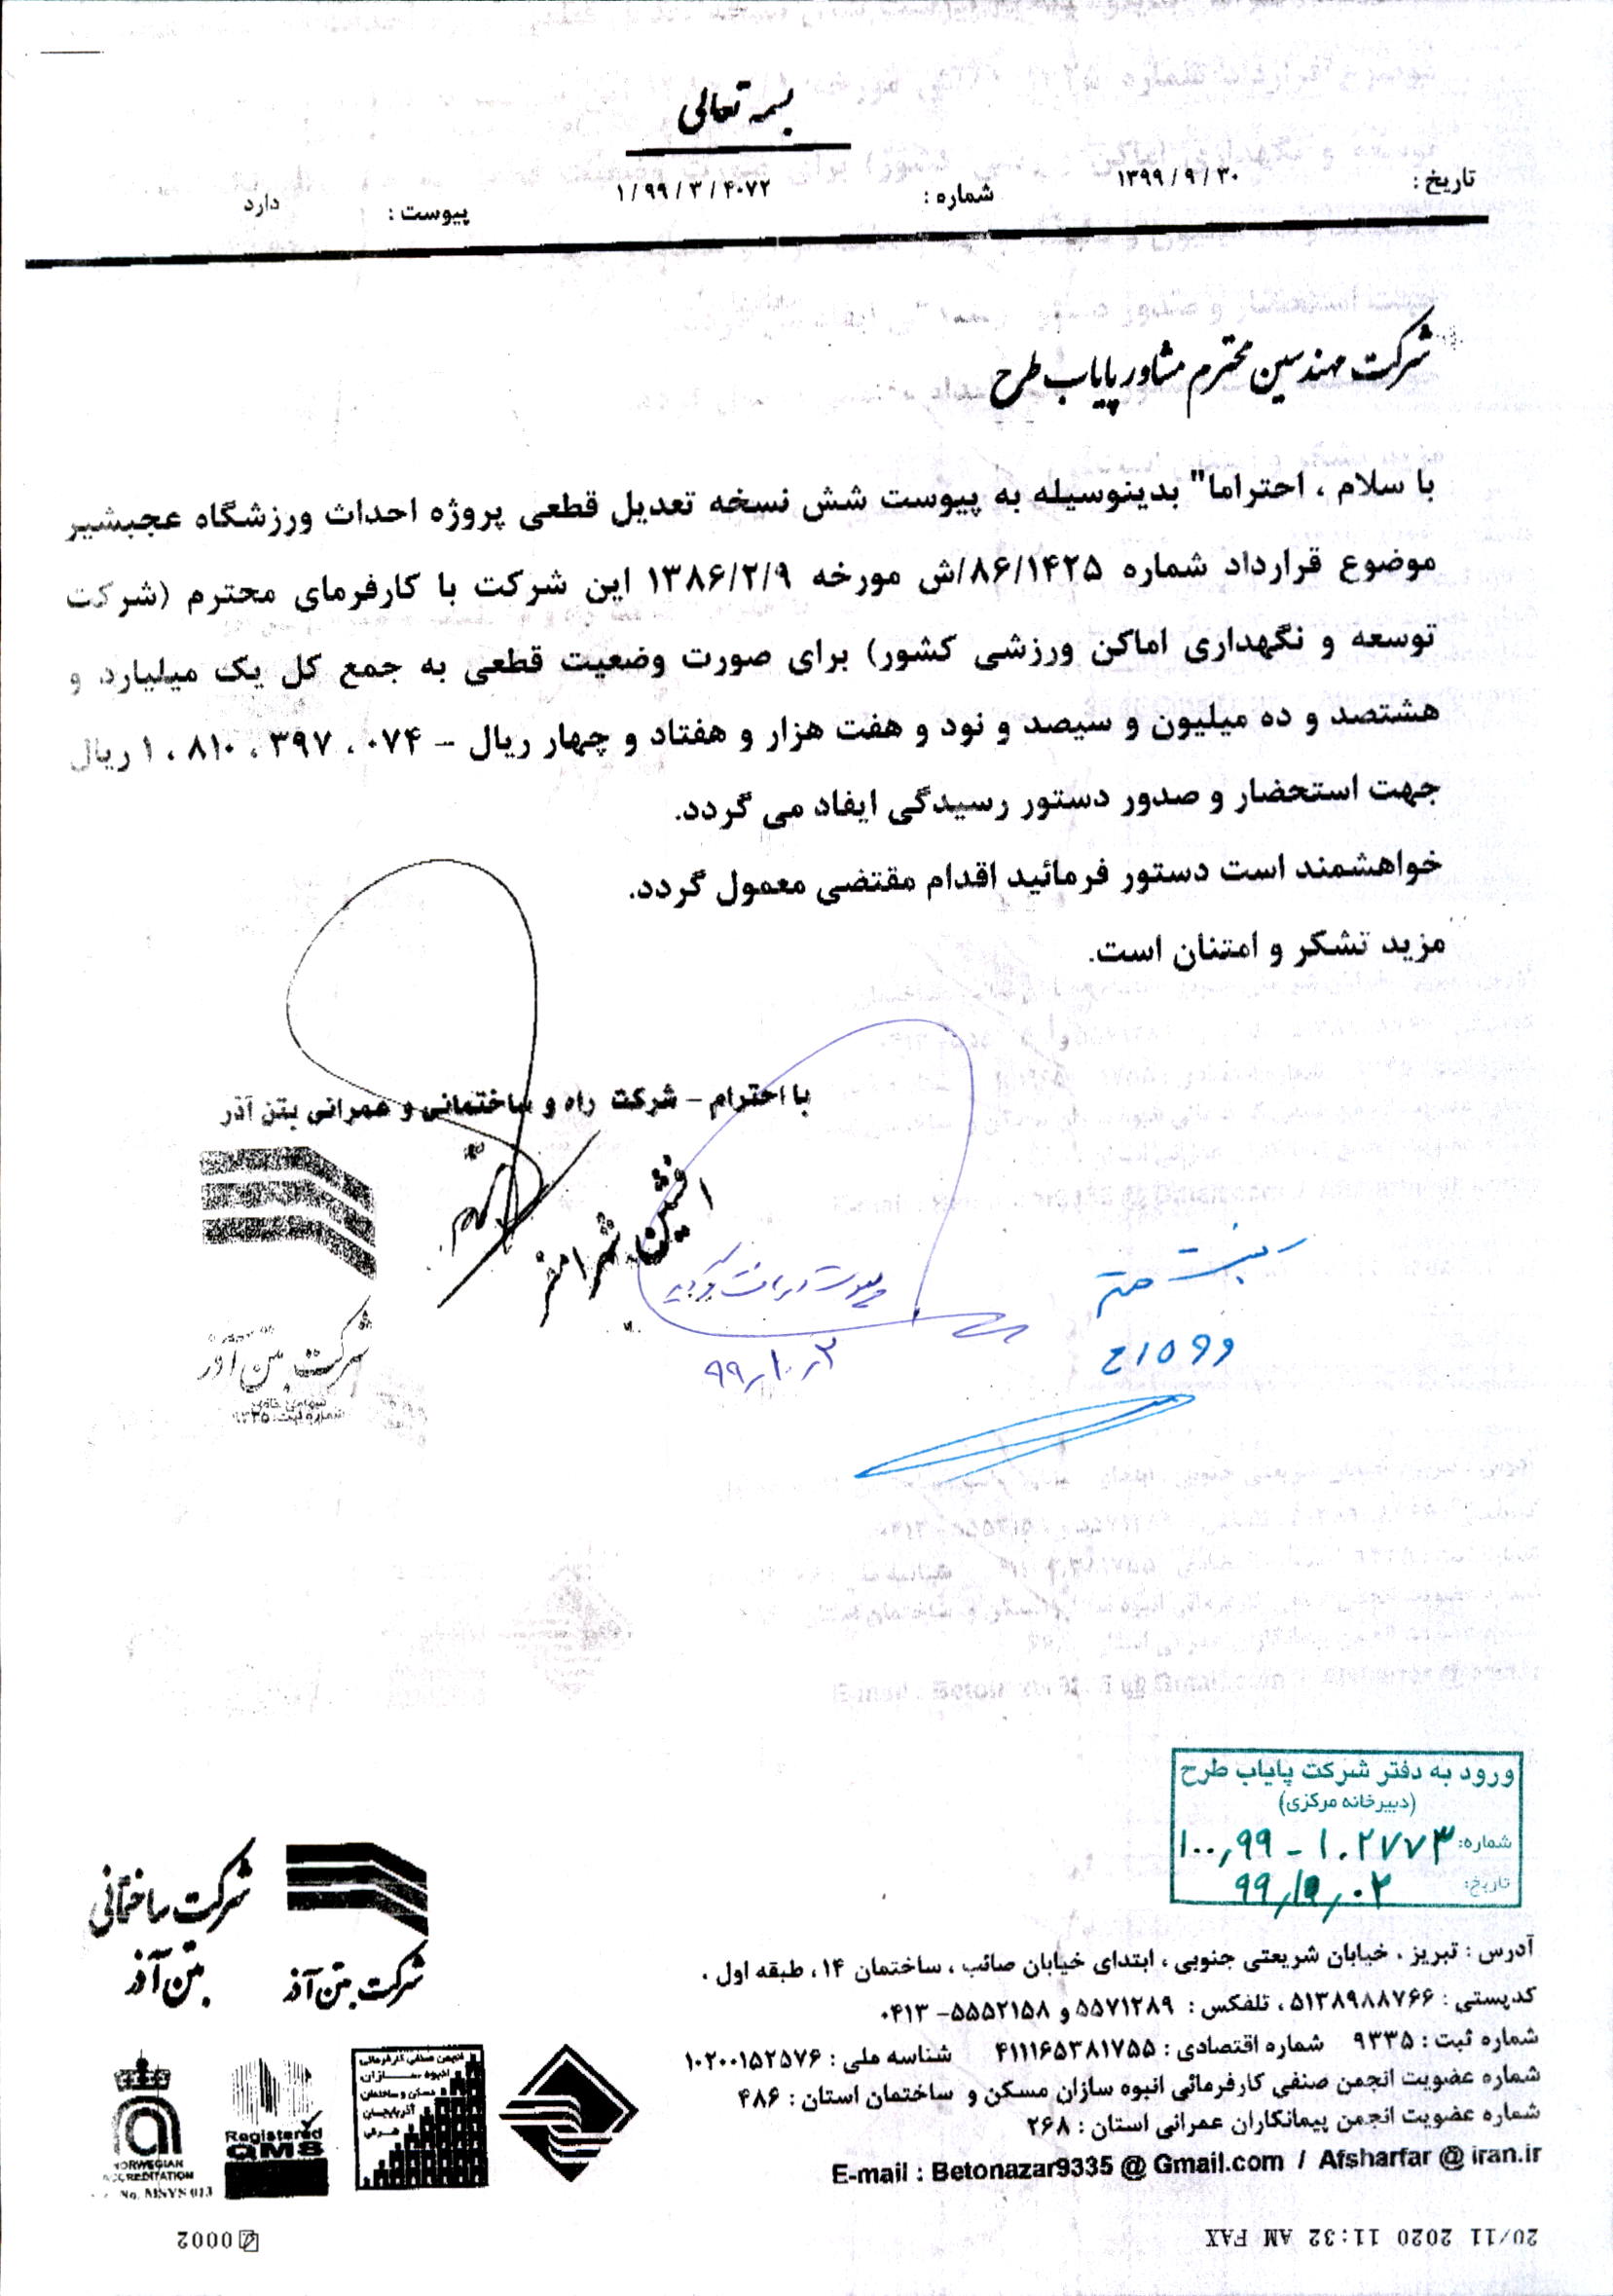 بسمه تعالی
تاریخ : ۱۳۹۹/۹/۳۰ شماره : ۱/۹۹/۳/۴۰۷۲ پیوست : دارد
شرکت مهندسین محترم مشاور پایاب طرح
با سلام ، احتراما" بدینوسیله به پیوست شش نسخه تعدیل قطعی پروژه احداث ورزشگاه عجبشیر
موضوع قرارداد شماره ۸۶/۱۴۲۵/ش مورخه ۱۳۸۶/۲/۹ این شرکت با کارفرمای محترم (شرکت
توسعه و نگهداری اماکن ورزشی کشور) برای صورت وضعیت قطعی به جمع کل یک میلیارد و
هشتصد و ده میلیون و سیصد و نود و هفت هزار و هفتاد و چهار ریال – ۱،۸۱۰،۳۹۷،۰۷۴ ریال
جهت استحضار و صدور دستور رسیدگی ایفاد می گردد.
خواهشمند است دستور فرمائید اقدام مقتضی معمول گردد.
مزید تشکر و امتنان است.
با احترام – شرکت راه و ساختمانی و عمرانی بتن آذر
افشین
شرکت بتن آذر
شماره ثبت: ۹۳۳۵
دریافت گردید
۹۹٫۱۰٫۲
ورود به دفتر شرکت پایاب طرح
(دبیرخانه مرکزی)
شماره: ۱۰۰٫۹۹ - ۱۰۲۷۷۳
تاریخ: ۹۹٫۱۰٫۰۲
شرکت ساختمانی
بتن آذر
شرکت بتن آذر
آدرس : تبریز ، خیابان شریعتی جنوبی ، ابتدای خیابان صائب ، ساختمان ۱۴ ، طبقه اول .
کدپستی : ۵۱۳۸۹۸۸۷۶۶ ، تلفکس : ۵۵۷۱۲۸۹ و ۵۵۵۲۱۵۸ – ۰۴۱۳
شماره ثبت : ۹۳۳۵ شماره اقتصادی : ۴۱۱۱۶۵۳۸۱۷۵۵ شناسه ملی : ۱۰۲۰۰۱۵۲۵۷۶
شماره عضویت انجمن صنفی کارفرمائی انبوه سازان مسکن و ساختمان استان : ۴۸۶
شماره عضویت انجمن پیمانکاران عمرانی استان : ۲۶۸
E-mail : Betonazar9335 @ Gmail.com / Afsharfar @ iran.ir
انجمن صنفی کارفرمائی
انبوه سازان
مسکن و ساختمان
آذربایجان
شرقی
Registered
QMS
NORWEGIAN
ACCREDITATION
No. MSYS 013
20/11 2020 11:32 AM FAX
0002